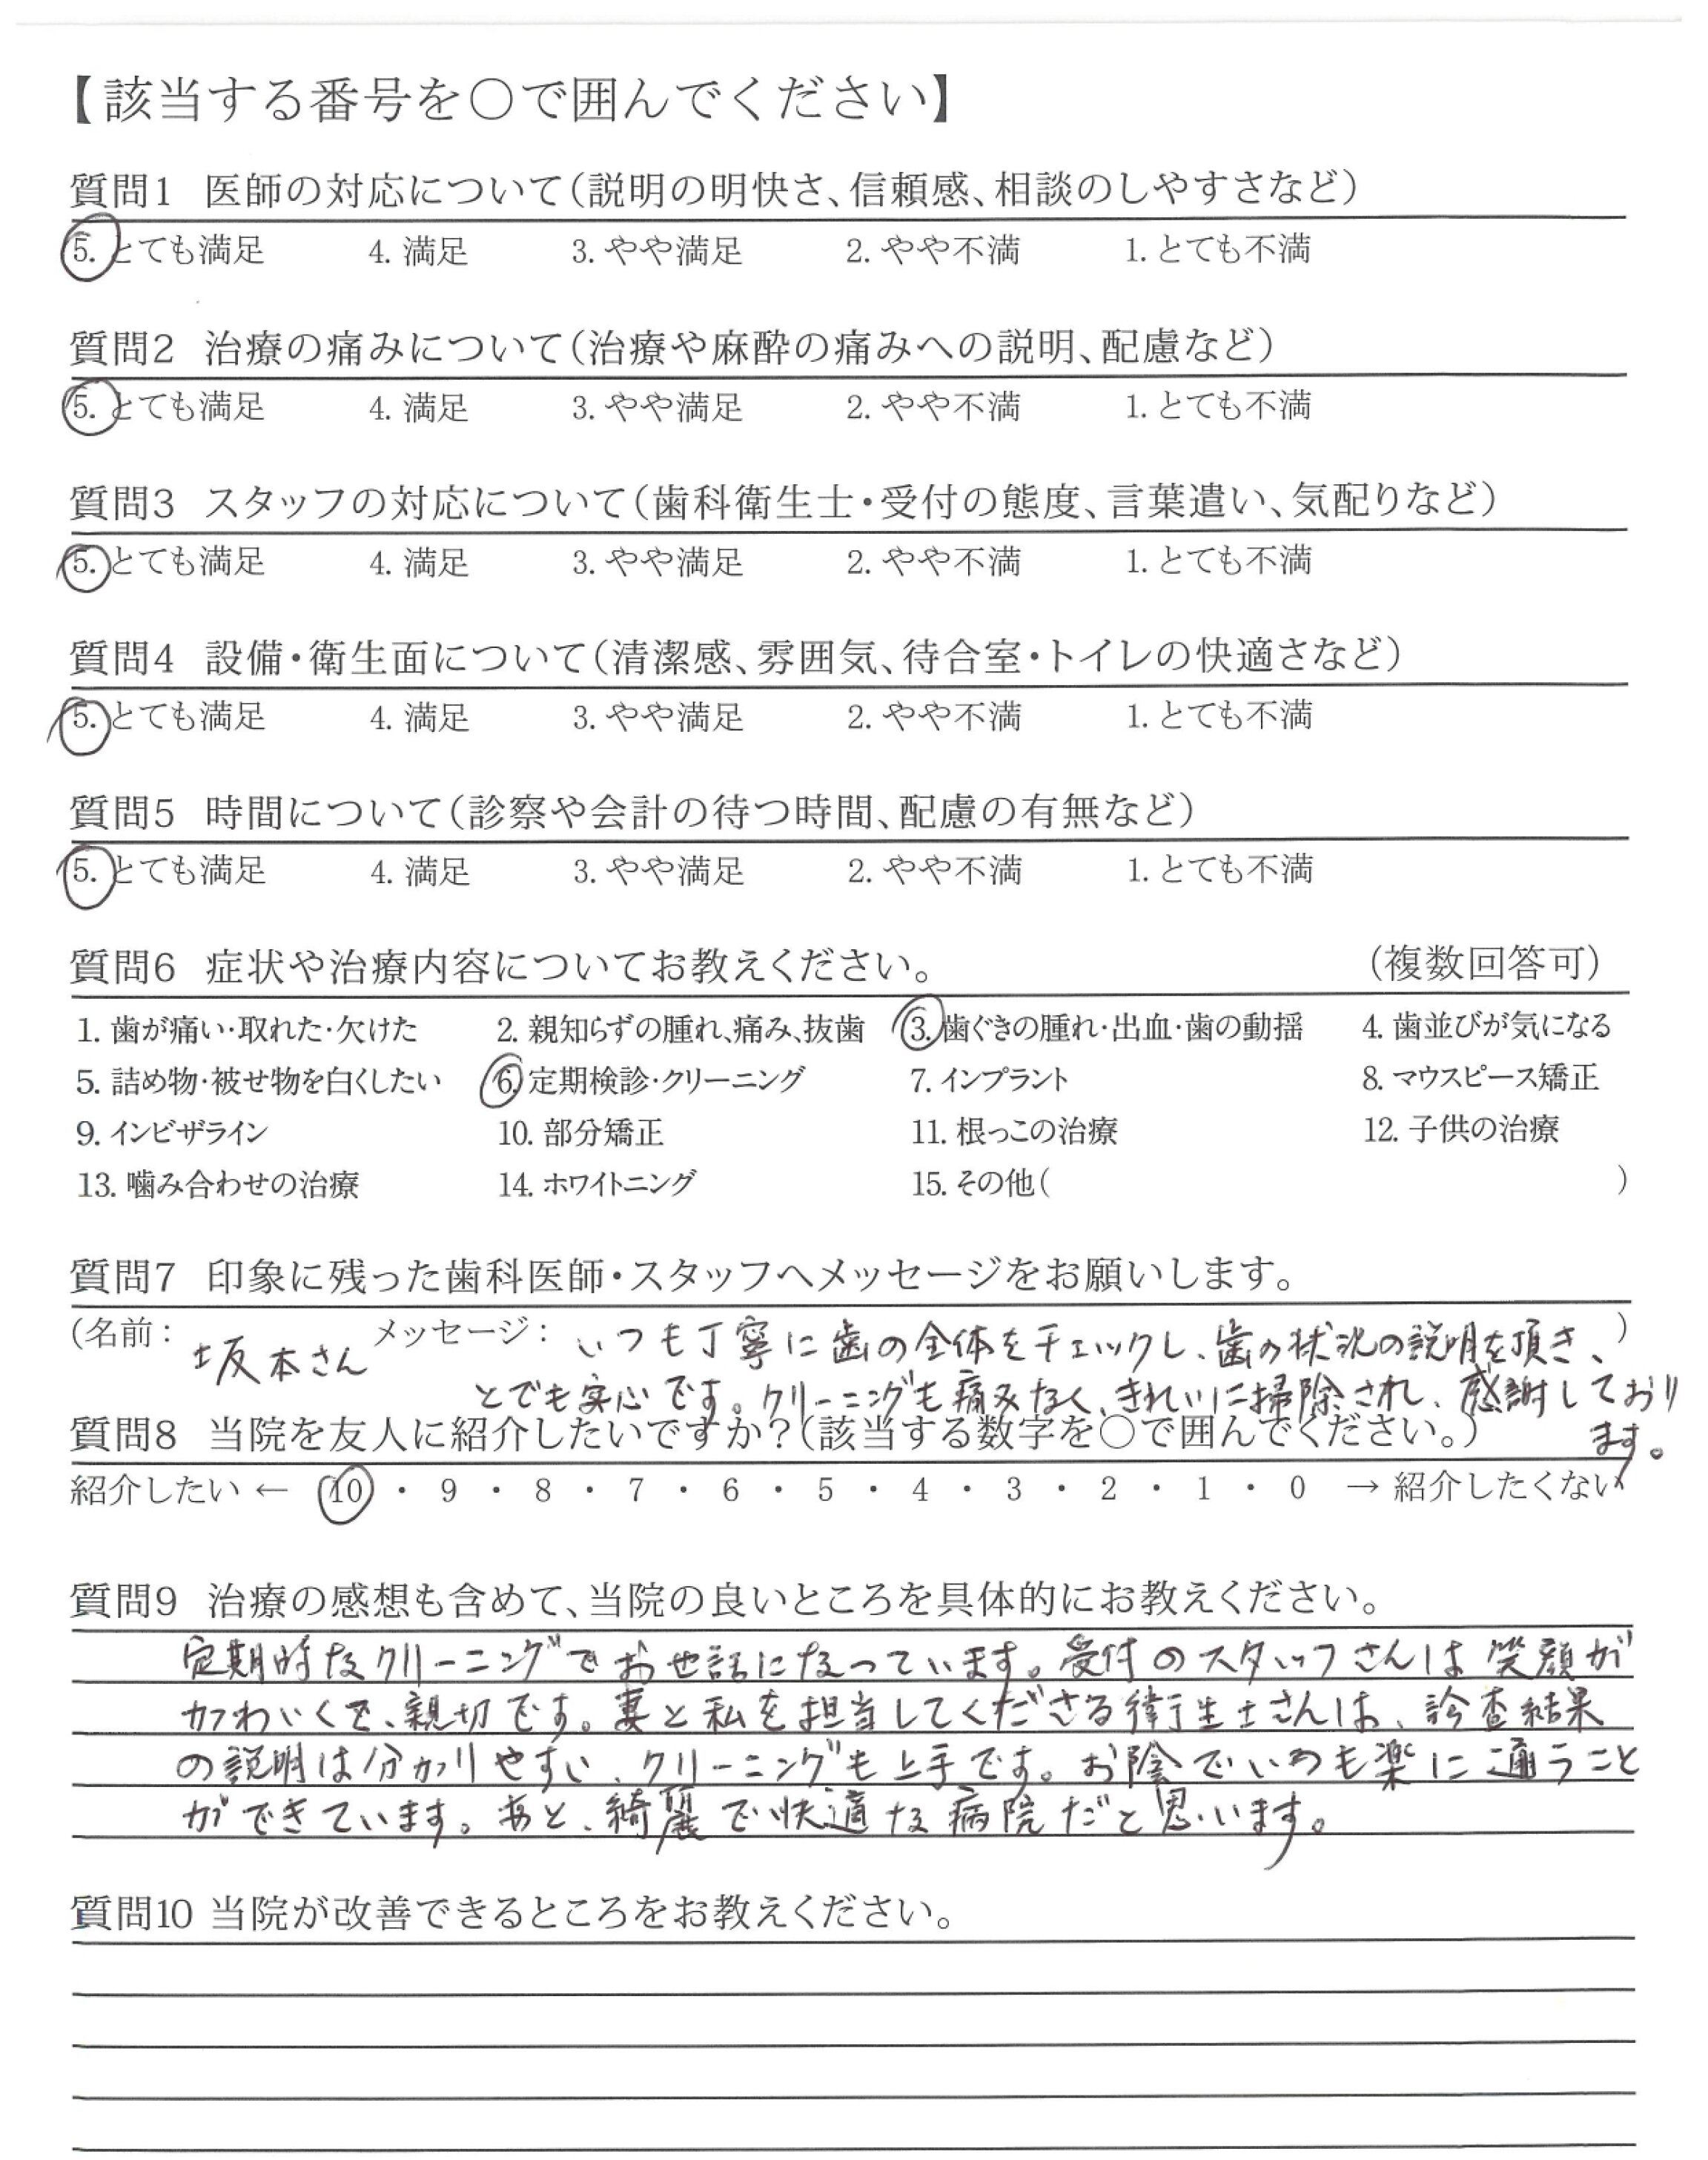 【該当する番号を○で囲んでください】
質問1 医師の対応について(説明の明快さ、信頼感、相談のしやすさなど)
5. とても満足 4. 満足 3. やや満足 2. やや不満 1. とても不満
質問2 治療の痛みについて(治療や麻酔の痛みへの説明、配慮など)
5. とても満足 4. 満足 3. やや満足 2. やや不満 1. とても不満
質問3 スタッフの対応について(歯科衛生士・受付の態度、言葉遣い、気配りなど)
5. とても満足 4. 満足 3. やや満足 2. やや不満 1. とても不満
質問4 設備・衛生面について(清潔感、雰囲気、待合室・トイレの快適さなど)
5. とても満足 4. 満足 3. やや満足 2. やや不満 1. とても不満
質問5 時間について(診察や会計の待つ時間、配慮の有無など)
5. とても満足 4. 満足 3. やや満足 2. やや不満 1. とても不満
質問6 症状や治療内容についてお教えください。 (複数回答可)
1. 歯が痛い・取れた・欠けた 2. 親知らずの腫れ、痛み、抜歯 3. 歯ぐきの腫れ・出血・歯の動揺 4. 歯並びが気になる
5. 詰め物・被せ物を白くしたい 6. 定期検診・クリーニング 7. インプラント 8. マウスピース矯正
9. インビザライン 10. 部分矯正 11. 根っこの治療 12. 子供の治療
13. 噛み合わせの治療 14. ホワイトニング 15. その他( )
質問7 印象に残った歯科医師・スタッフへメッセージをお願いします。
(名前: 坂本さん メッセージ: いつも丁寧に歯の全体をチェックし、歯の状況の説明を頂き、)
とても安心です。クリーニングも痛みなく、きれいに掃除され、感謝しており
ます。
質問8 当院を友人に紹介したいですか?(該当する数字を○で囲んでください。)
紹介したい ← 10 ・ 9 ・ 8 ・ 7 ・ 6 ・ 5 ・ 4 ・ 3 ・ 2 ・ 1 ・ 0 → 紹介したくない
質問9 治療の感想も含めて、当院の良いところを具体的にお教えください。
定期的なクリーニングでお世話になっています。受付のスタッフさんは笑顔が
かわいくて、親切です。妻と私を担当してくださる衛生士さんは、診査結果
の説明は分かりやすい、クリーニングも上手です。お陰でいつも楽に通うこと
ができています。あと、綺麗で快適な病院だと思います。
質問10 当院が改善できるところをお教えください。